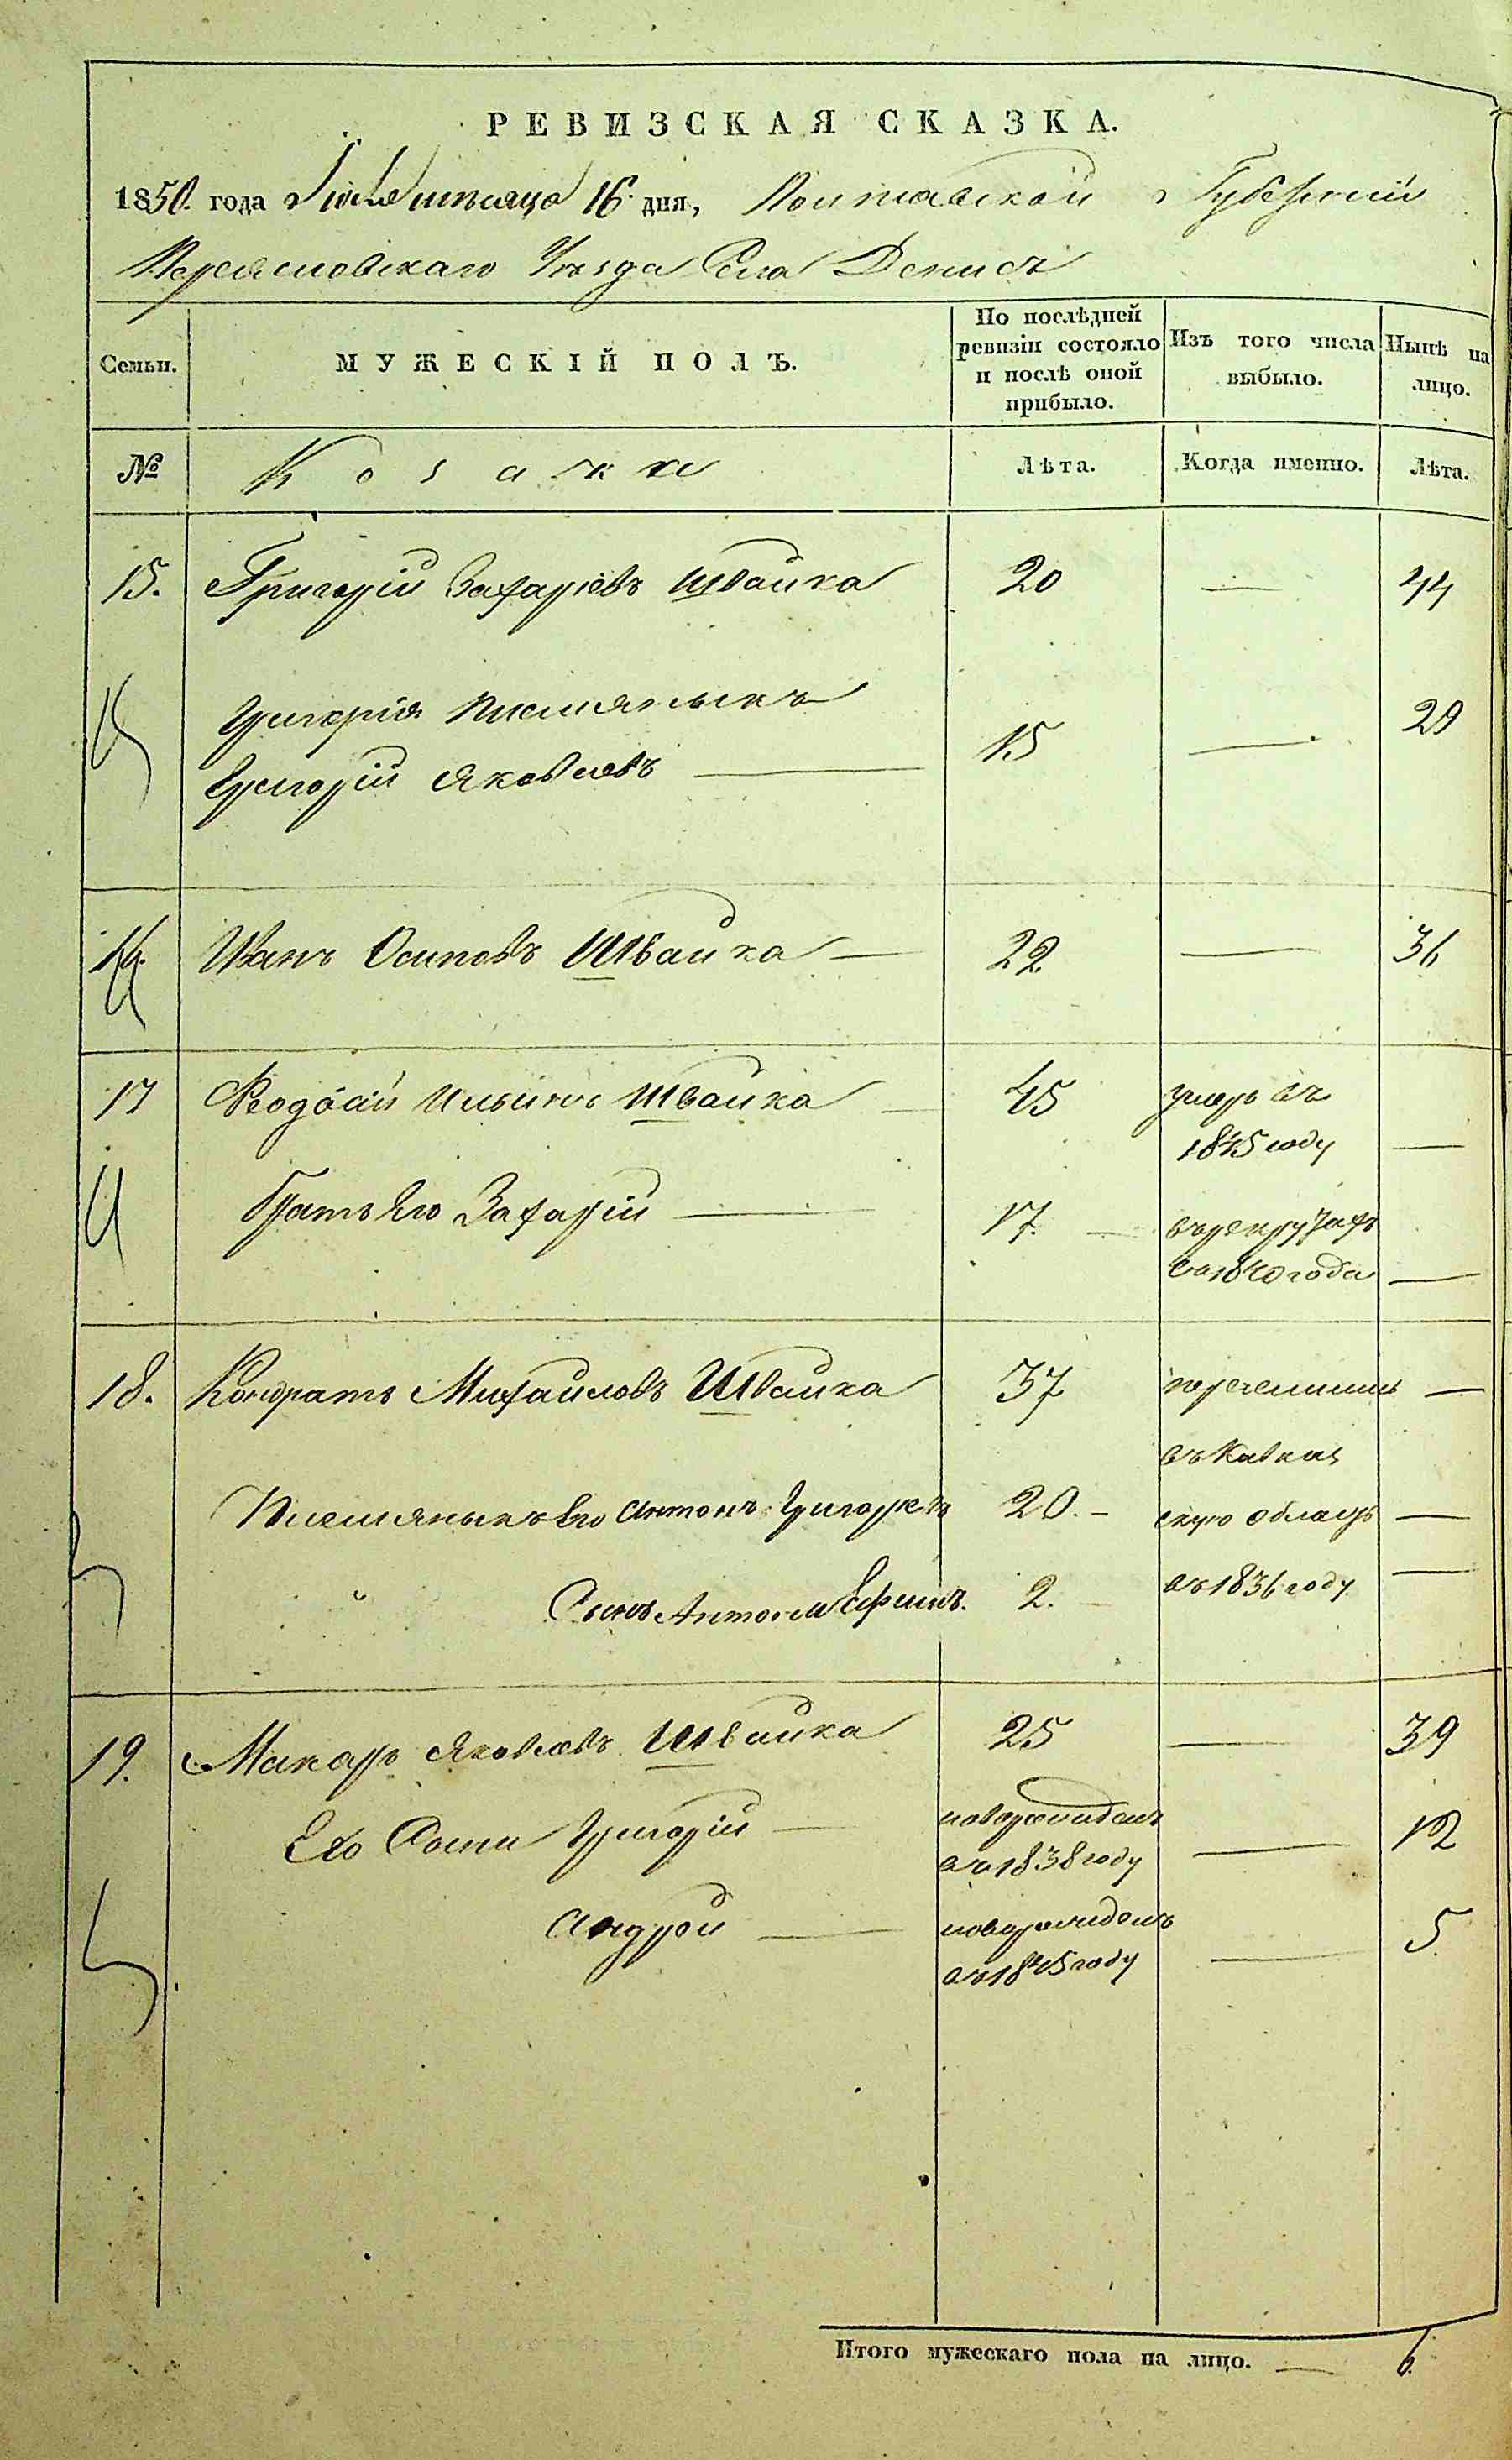 РЕВИЗСКАЯ СКАЗКА.
1850 года Июля мѣсяца 16 дня, Полтавской Губерніи
Переясловскаго Уѣзда Села Денисъ
Семьи.
МУЖЕСКІЙ ПОЛЪ.
По послѣдней ревизіи состояло и послѣ оной прибыло.
Изъ того числа выбыло.
Нынѣ на лицо.
№
Козаки
Лѣта.
Когда именно.
Лѣта.
15. Григорій Захаріевъ Швайка 20 — 44
Григорія племянникъ
Григорій Яковлевъ — 15 — 29
16. Иванъ Осиповъ Швайка — 22 — 36
17 Ильинъ Швайка — 45 умеръ въ
1845 году —
братъ Его Захарій — 17. — въ рекрутахъ
съ 1840 года —
18. Кондратъ Михайловъ Швайка 37 перечислины —
въ Кавказ
Племянникъ Его Антонъ Григорьевъ 20. — скую область —
Сынъ Антона Ефимъ. 2. — въ 1836 году —
19. Макаръ Яковлевъ Швайка 25 — 39
Его Сыны Григорій — новорожденъ
въ 1838 году — 12
Андрей — новорожденъ
въ 1845 году — 5
Итого мужескаго пола на лицо. — 6.